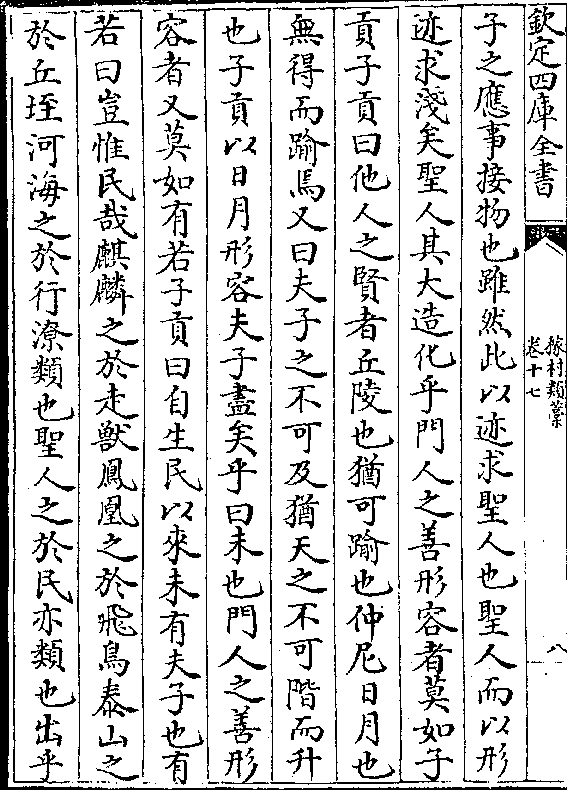 欽定四庫全書
稼村類藁
卷十七
八
子之應事接物也雖然此以迹求聖人也聖人而以形
迹求淺矣聖人其大造化乎門人之善形容者莫如子
貢子貢曰他人之賢者丘陵也猶可踰也仲尼日月也
無得而踰焉又曰夫子之不可及猶天之不可階而升
也子貢以日月形容夫子盡矣乎曰未也門人之善形
容者又莫如有若子貢曰自生民以來未有夫子也有
若曰豈惟民哉麒麟之於走獸鳳凰之於飛鳥泰山之
於丘垤河海之於行潦類也聖人之於民亦類也出乎